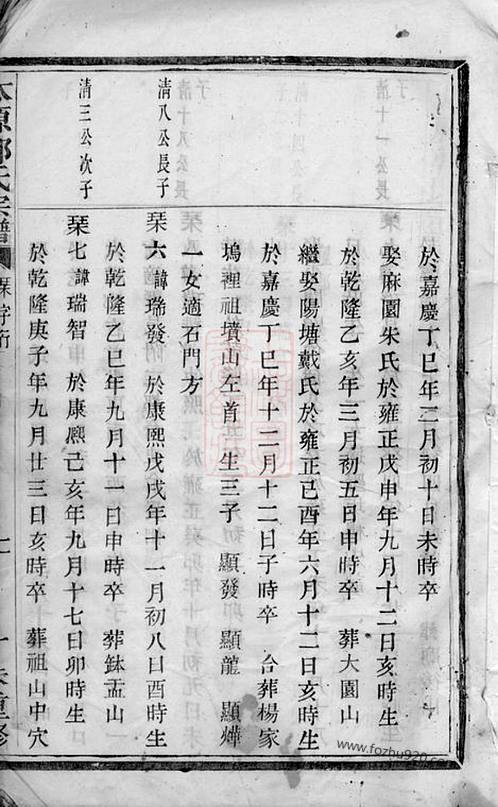 於嘉慶丁巳年二月初十日未時卒
娶麻園朱氏於雍正戊申年九月十二日亥時生
於乾隆乙亥年三月初五日申時卒 葬大園山
繼娶陽塘戴氏於雍正己酉年六月十二日亥時生
於嘉慶丁巳年十二月十二日子時卒 台葬楊家
塢裡祖墳山左首 生三子 顯發 顯龍 顯燁
一女適石門方
清八公長子
琹六諱瑞發 於康熙戊戌年十一月初八日酉時生
於乾隆乙巳年九月十一日申時卒 葬鉢盂山
清三公次子
琹七諱瑞智 於康熙己亥年九月十七日卯時生
於乾隆庚子年九月廿三日亥時卒 葬祖山中穴
太原郭氏宗譜
重修
www.fozhu920.com